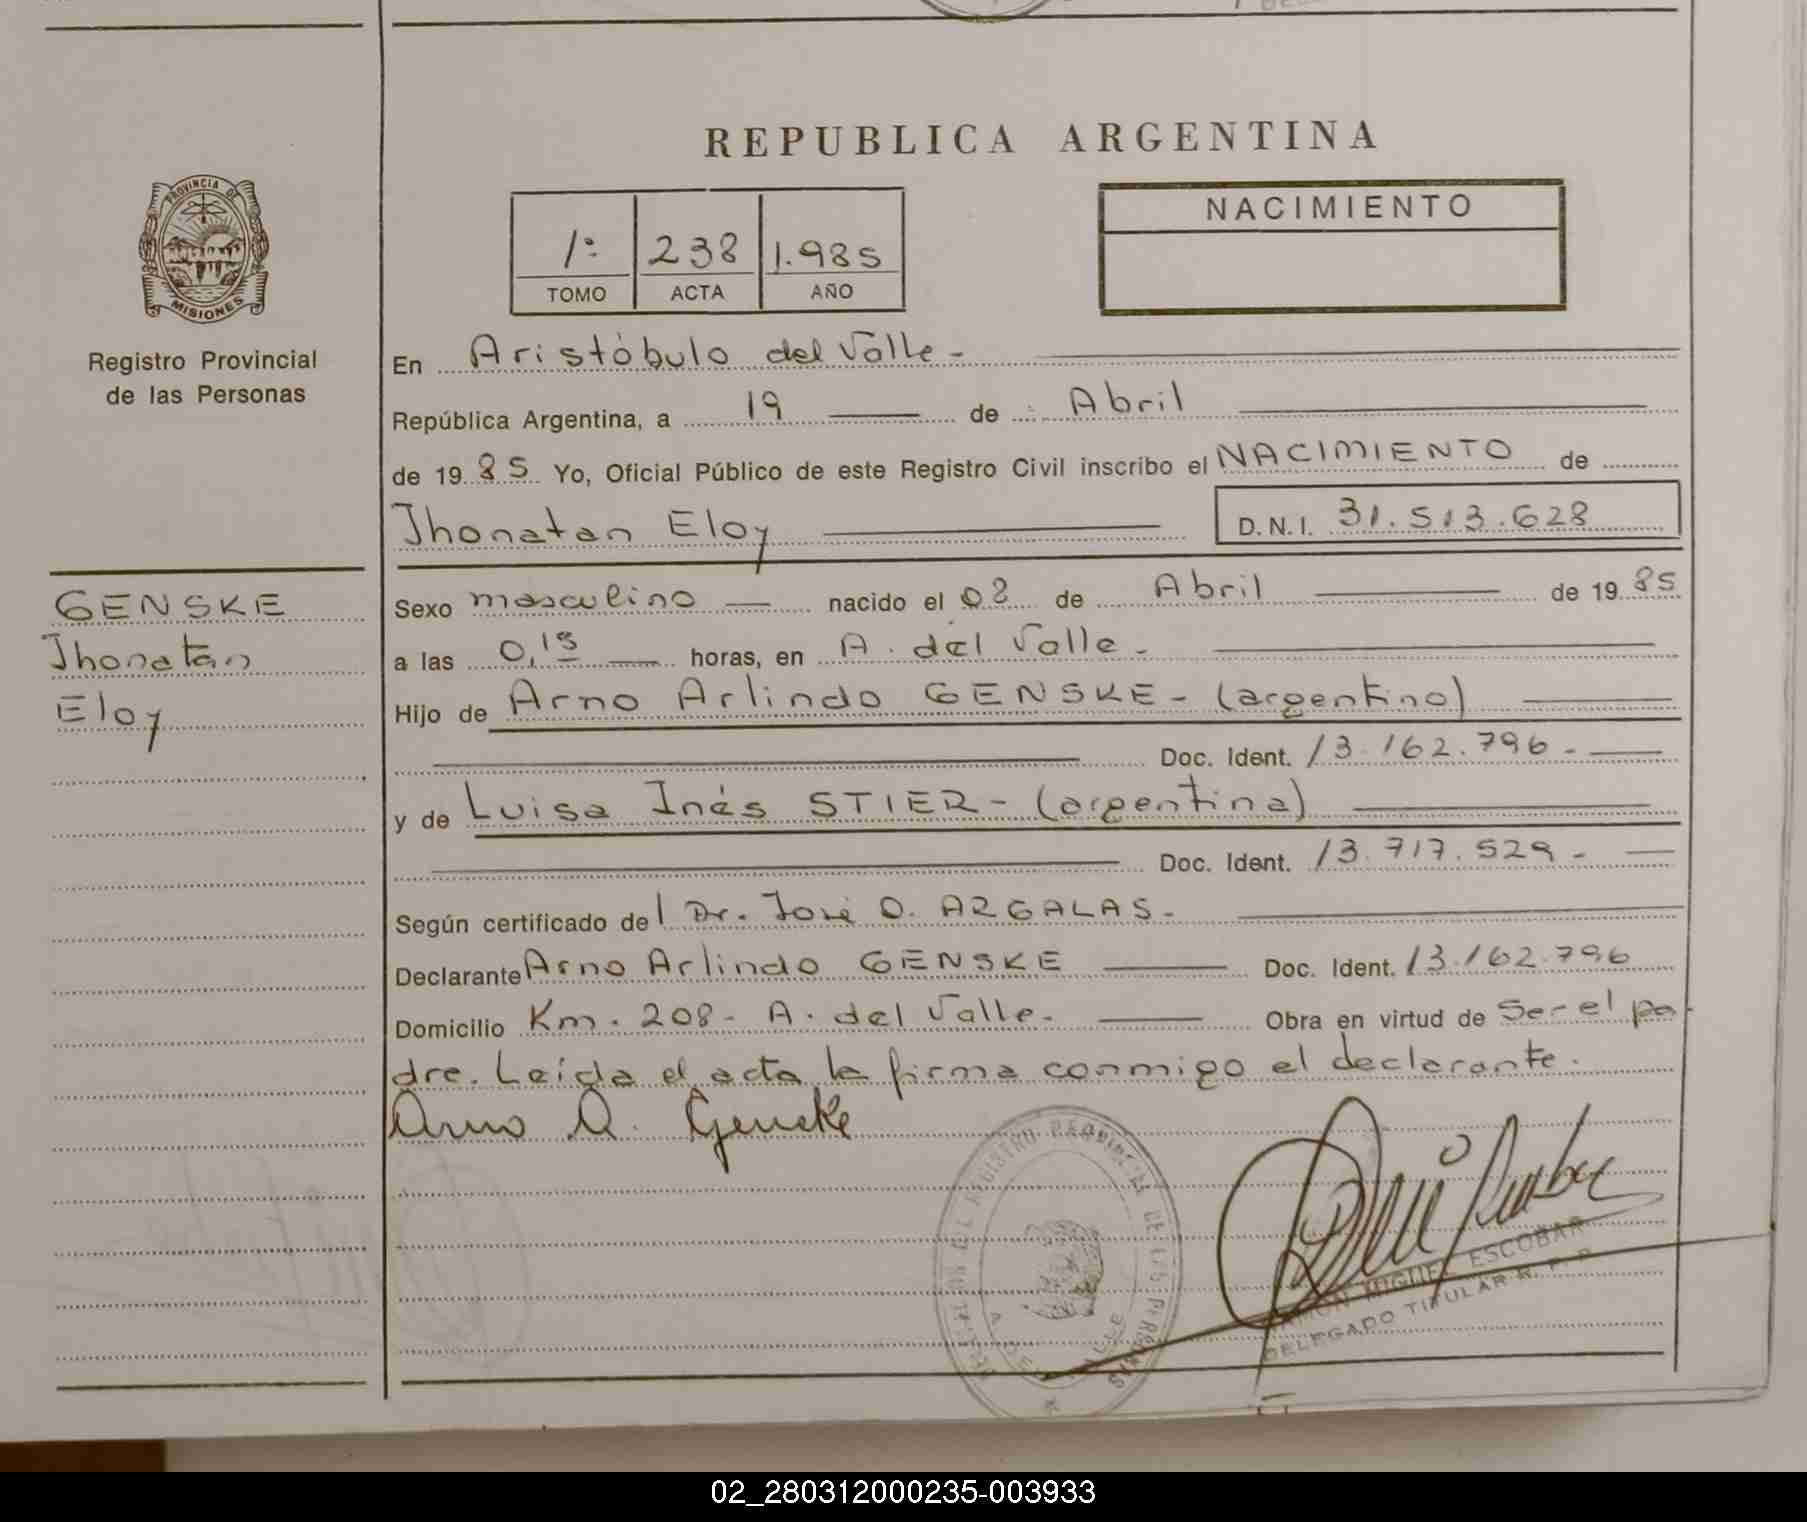 REPUBLICA ARGENTINA
PROVINCIA DE
MISIONES
Registro Provincial
de las Personas
1º 238 1.985
TOMO ACTA AÑO
NACIMIENTO
En Aristóbulo del Valle -
República Argentina, a 19 de Abril
de 19 85 Yo, Oficial Público de este Registro Civil inscribo el NACIMIENTO de
Jhonatan Eloy D.N.I. 31.513.628
GENSKE
Jhonatan
Eloy
Sexo masculino nacido el 08 de Abril de 19 85
a las 0,15 horas, en A. del Valle -
Hijo de Arno Arlindo GENSKE - (argentino)
Doc. Ident. 13.162.796 -
y de Luisa Inés STIER - (argentina)
Doc. Ident. 13.717.529 -
Según certificado del Dr. José O. ARGALAS -
Declarante Arno Arlindo GENSKE Doc. Ident. 13.162.796
Domicilio Km. 208 - A. del Valle - Obra en virtud de ser el pa-
dre. Leída el acta la firma conmigo el declarante.
Arno A. Genske
REGISTRO PROVINCIAL DE LAS PERSONAS
MIGUEL ESCOBAR
DELEGADO TITULAR R. P. P.
02_280312000235-003933